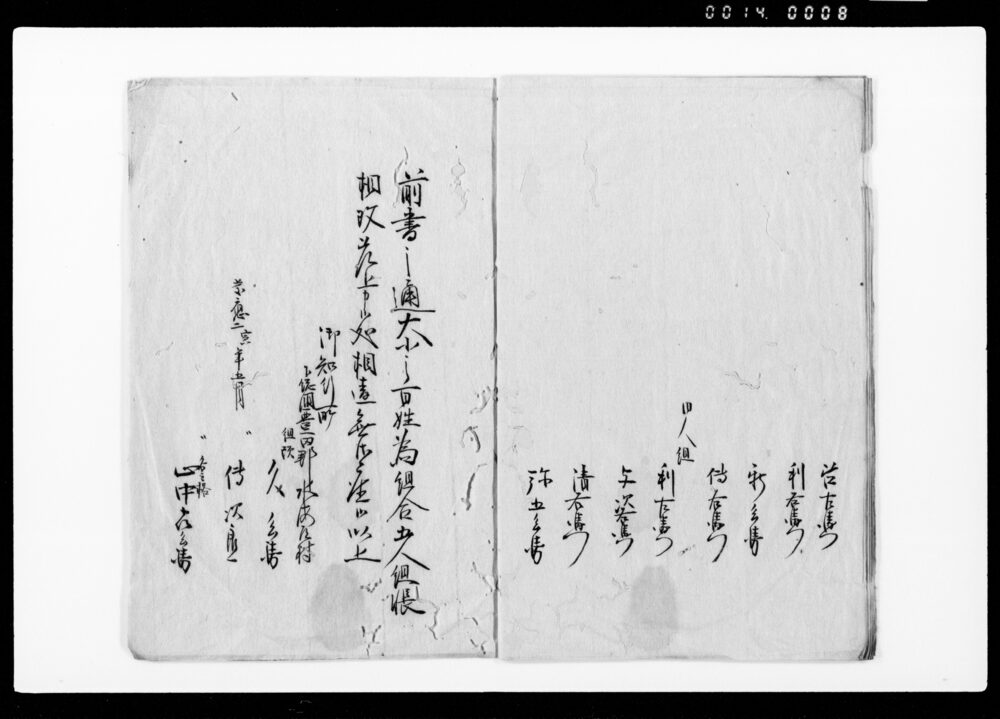 0014. 0008
治右衛門
利右衛門
新兵衛
傳右衛門
四人組
利左衛門
与次右衛門
清右衛門
弥五兵衛
前書之通大小之百姓為組合五人組帳
相改差上申処相違無御座候以上
御知行所
下総国豊田郡水海道村
組頭
久兵衛
慶應二寅年五月
〃 傳次郎
〃
山中六兵衛